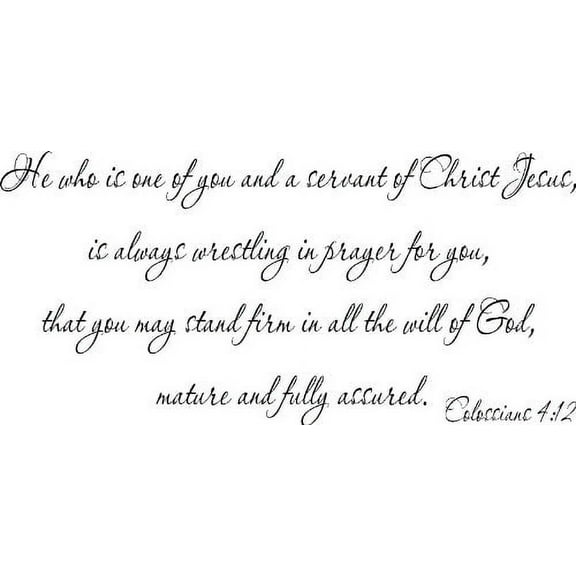 He who is one of you and a servant of Christ Jesus,
is always wrestling in prayer for you,
that you may stand firm in all the will of God,
mature and fully assured.
Colossians 4:12